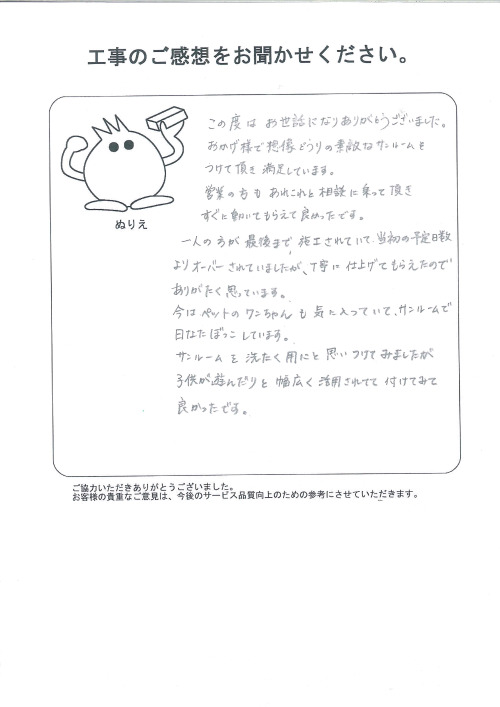 工事のご感想をお聞かせください。
この度は お世話になりありがとうございました。
おかげ様で想像どうりの素敵なサンルームを
つけて頂き 満足しています。
営業の方も あれこれと相談に乗って頂き
すぐに動いてもらえて良かったです。
ぬりえ
一人の方が 最後まで 施工されていて、当初の予定日数
よりオーバーされていましたが、丁寧に 仕上げてもらえたので
ありがたく 思っています。
今は ペットの ワンちゃん も 気に入っていて、サンルームで
日なたぼっこ しています。
サンルーム を 洗たく 用にと 思い つけて みましたが
子供が遊んだりと 幅広く 活用されてて 付けてみて
良かったです。
ご協力いただきありがとうございました。
お客様の貴重なご意見は、今後のサービス品質向上のための参考にさせていただきます。